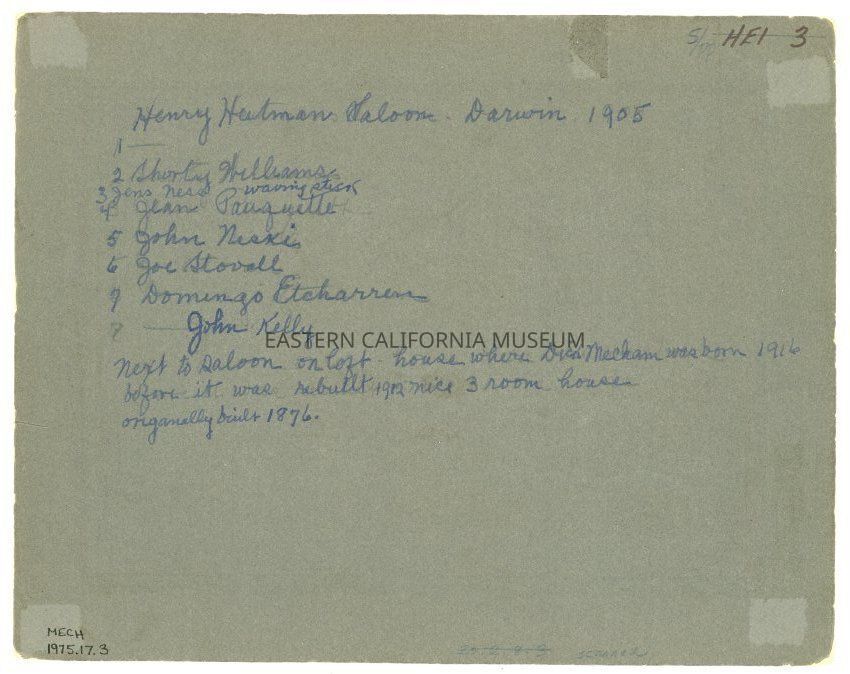 HEI 3
Henry Heitman Saloon. Darwin 1905
1 —
2 Shorty Williams
3 Jens Ness waving stick
4 Jean Pauquette
5 John Neski
6 Joe Stovall
7 Domingo Etcharren
8 — John Kelly
EASTERN CALIFORNIA MUSEUM
Next to saloon on left - house where Dick Mecham was born 1916
before it was rebuilt nice 3 room house
origanally built 1876.
MECH
1975.17.3